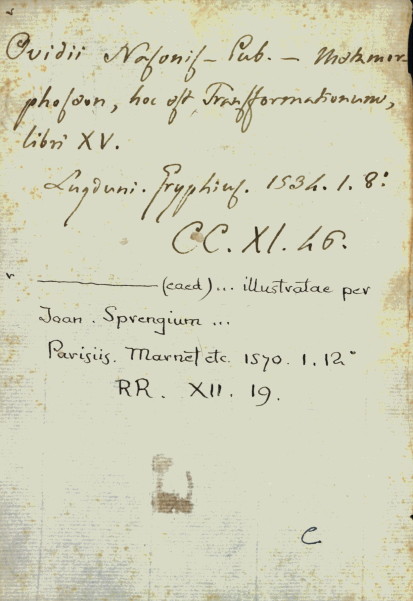 Ovidii Nasonis - Pub. - Metamor
phoseon, hoc est, Transformationum,
libri XV.
Lugduni. Gryphius. 1534. 1. 8º
CC. XI. 46.
(eaed) ... illustratae per
Joan. Sprengium ...
Parisiis. Marnet etc. 1570. 1. 12º
RR. XII. 19.
C